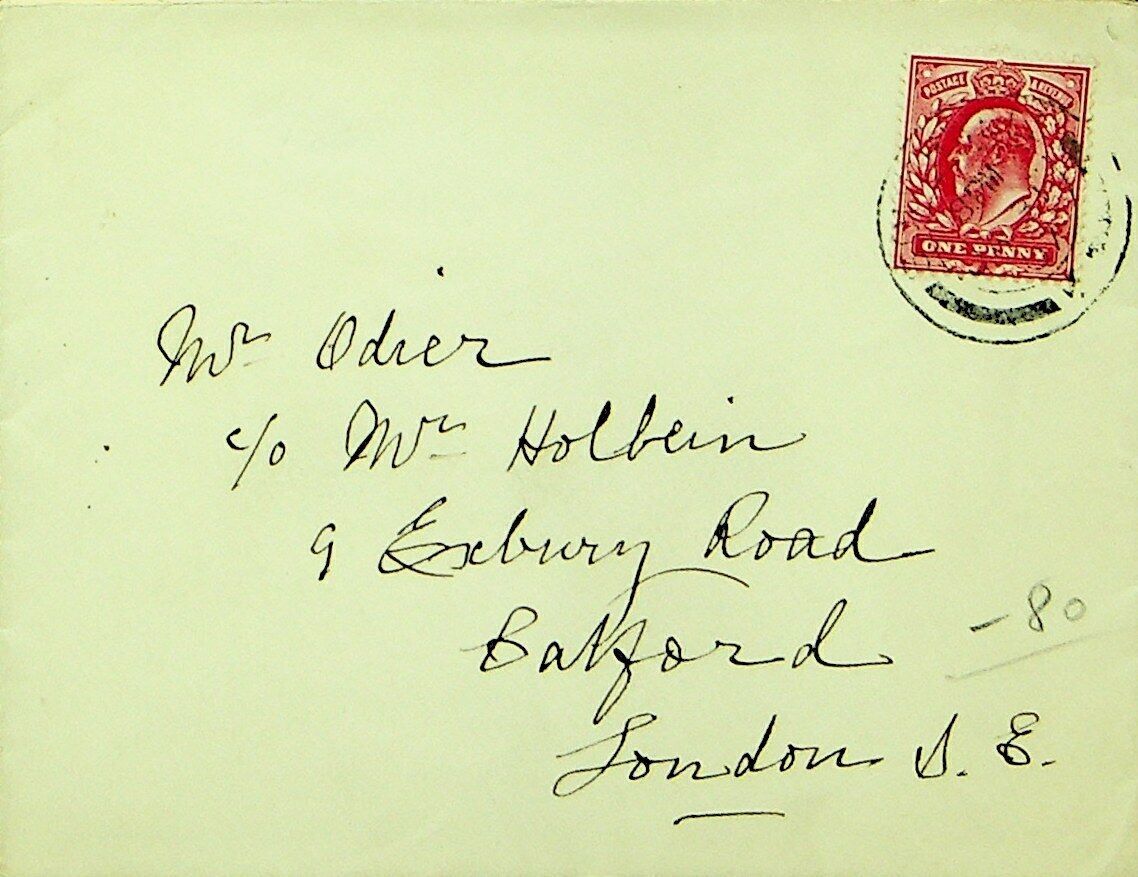 POSTAGE & REVENUE
ONE PENNY
Mr Odier
c/o Mr Holbein
9 Exbury Road
Catford
London S. E.
-80